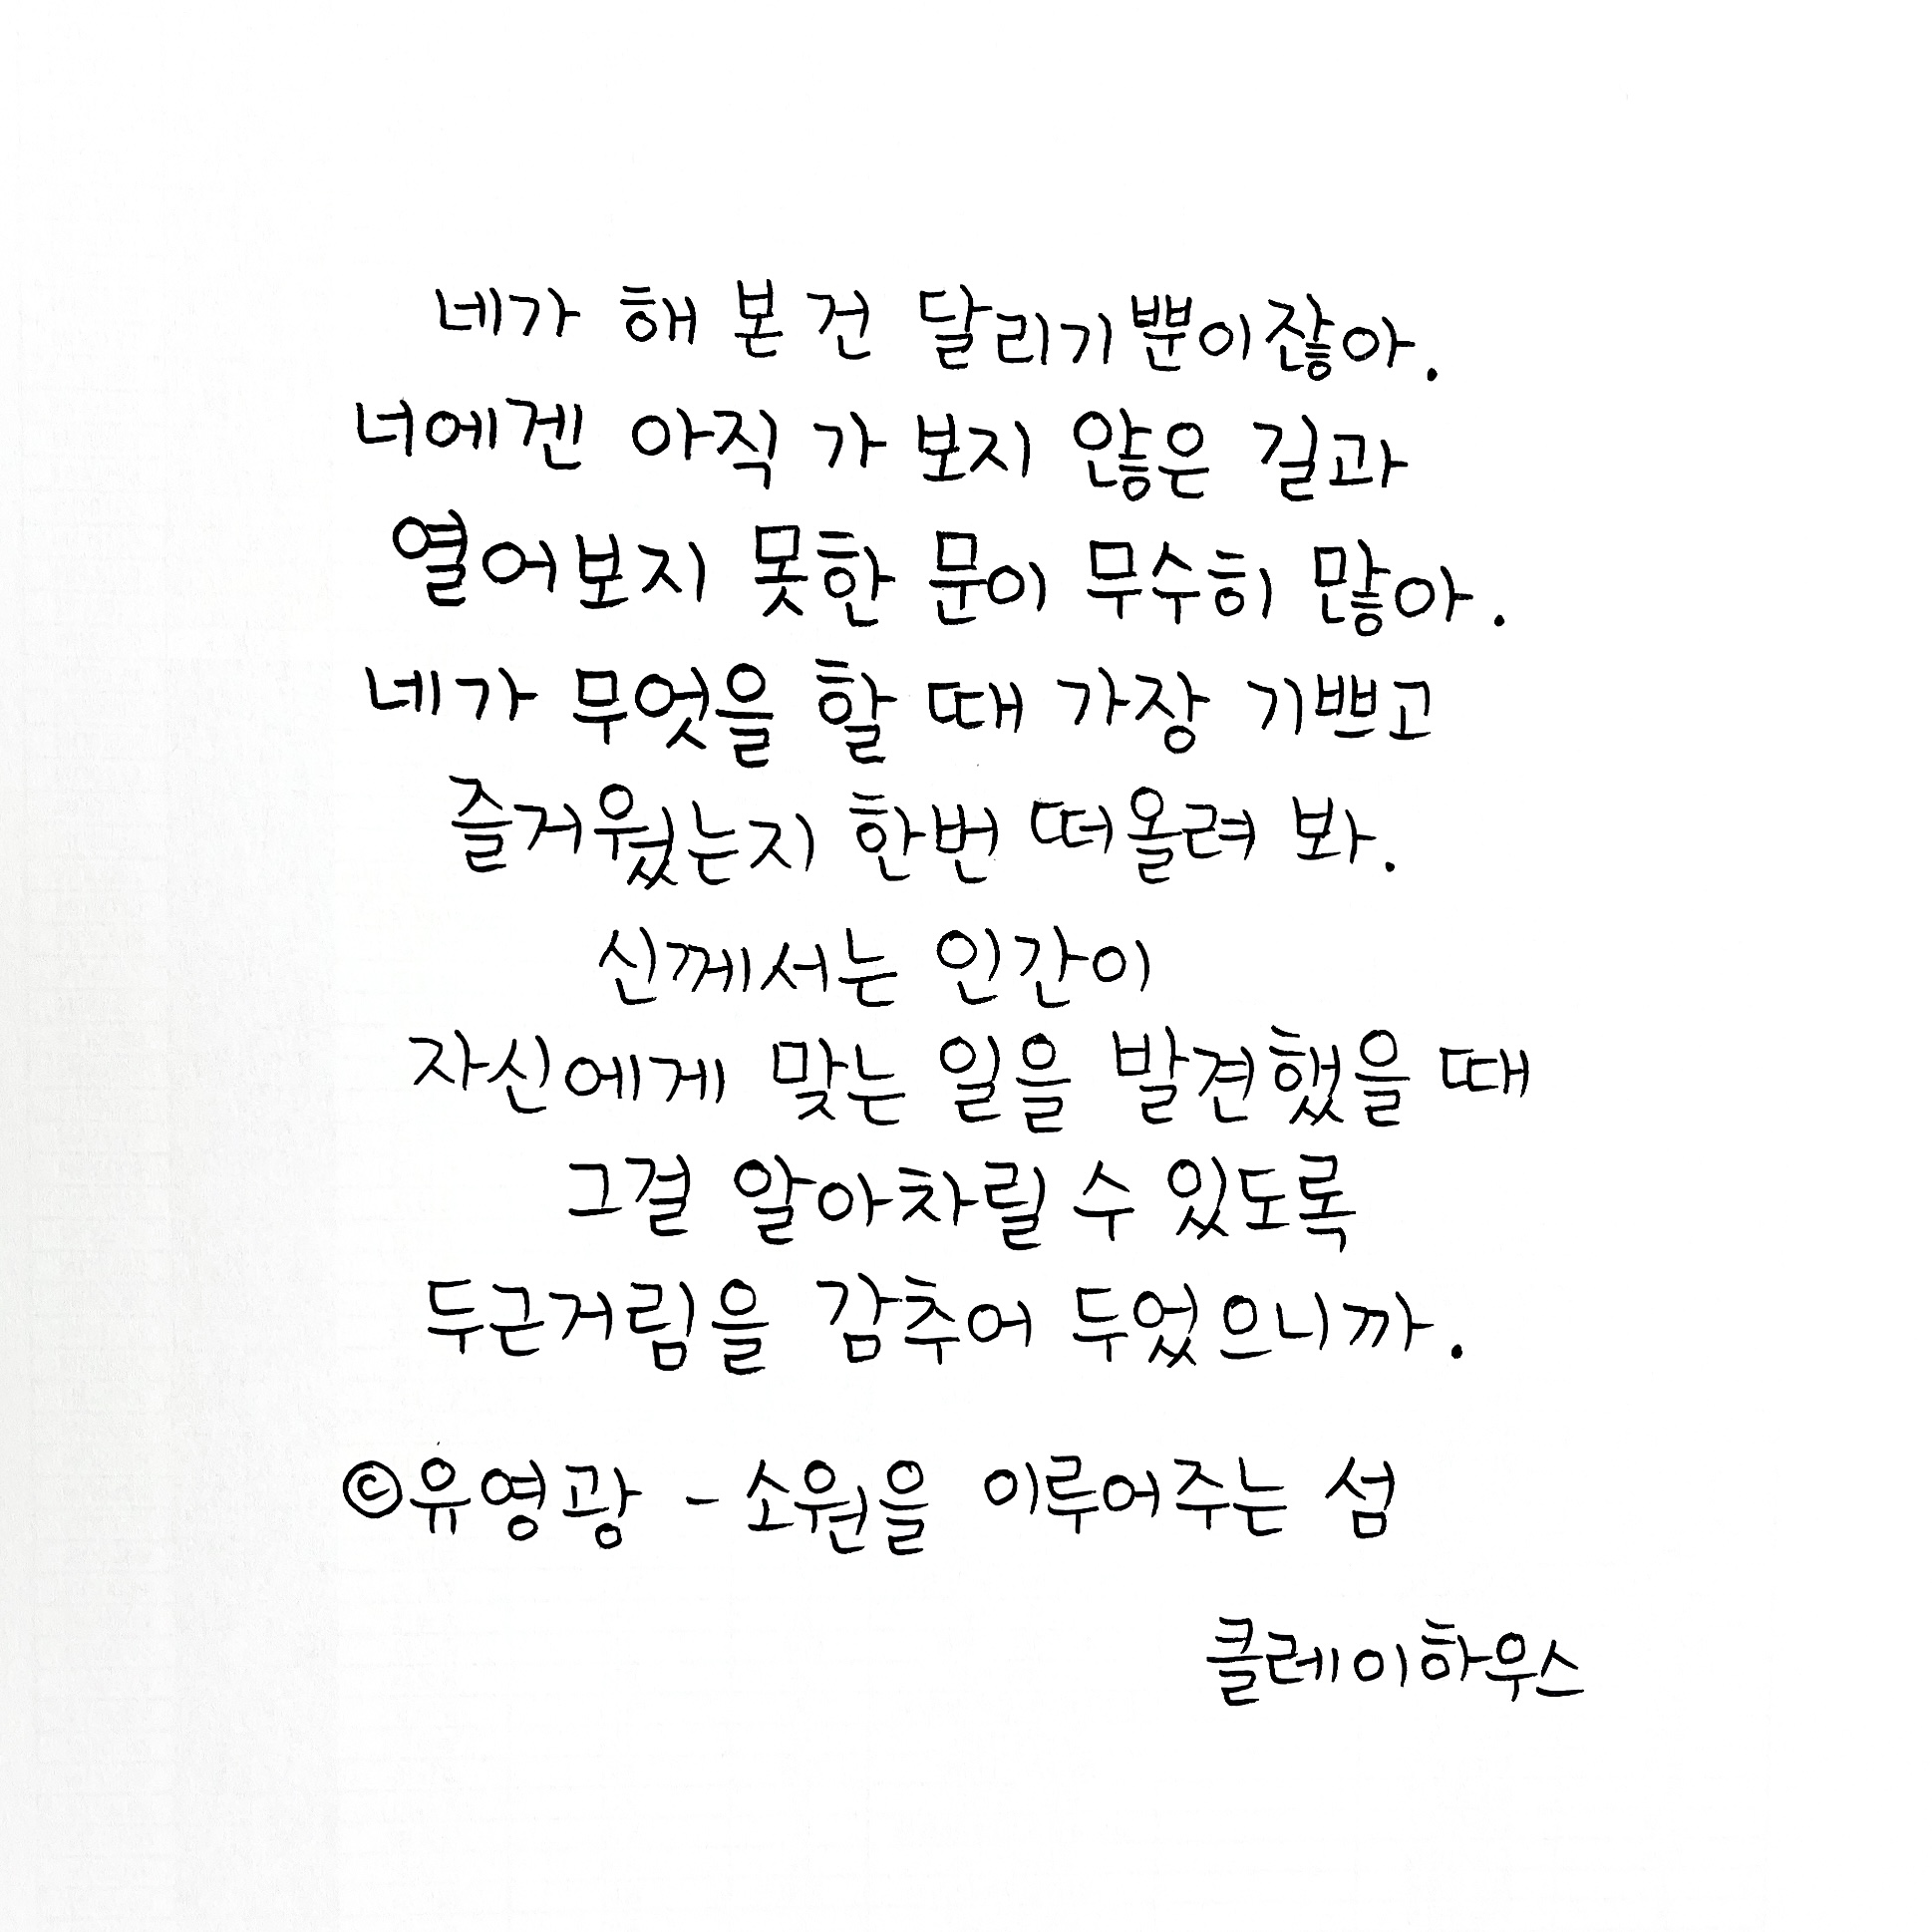 네가 해 본 건 달리기뿐이잖아.
너에겐 아직 가 보지 않은 길과
열어보지 못한 문이 무수히 많아.
네가 무엇을 할 때 가장 기쁘고
즐거웠는지 한번 떠올려 봐.
신께서는 인간이
자신에게 맞는 일을 발견했을 때
그걸 알아차릴 수 있도록
두근거림을 감추어 두었으니까.
©유영광 - 소원을 이루어주는 섬
클레이하우스